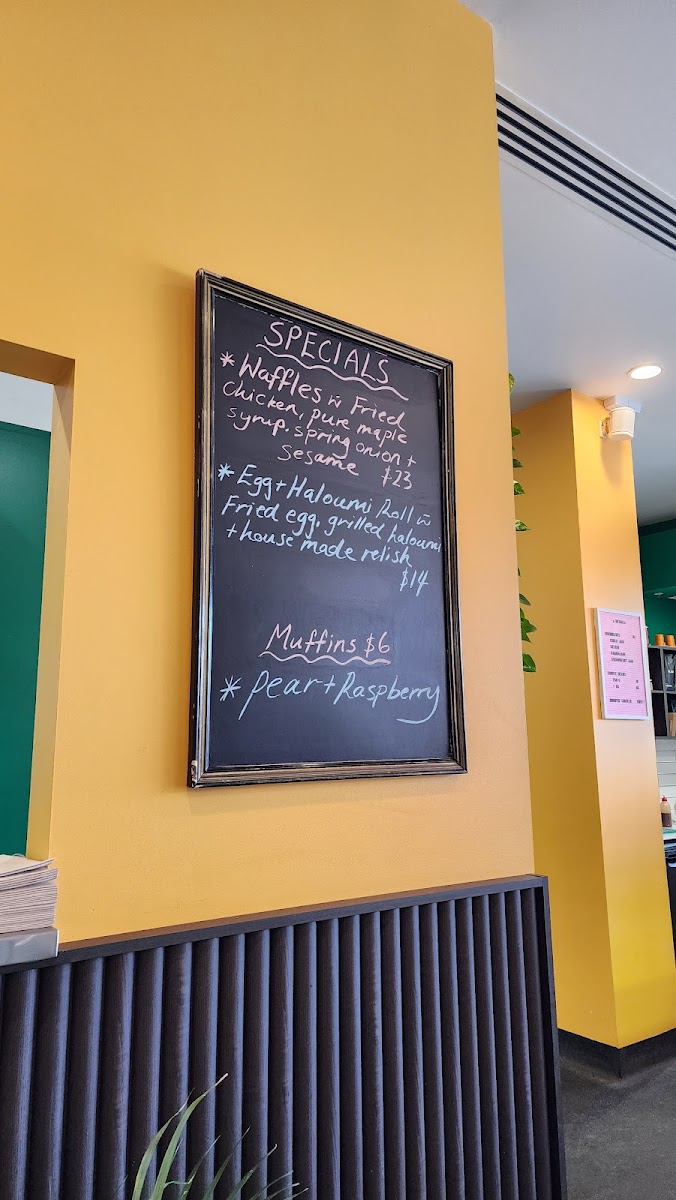 SPECIALS
* Waffles w̃ Fried
chicken, pure maple
syrup, spring onion +
sesame $23
* Egg + Haloumi Roll w̃
Fried egg, grilled haloumi
+ house made relish
$14
Muffins $6
* pear + Raspberry